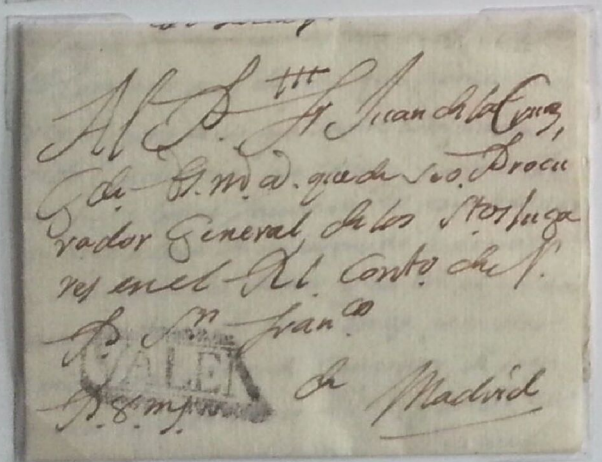 †††
Al P. Fr Juan de la Cruz,
G de S. m. a. que de Procu
rador General de los Stos luga
res en el Rl. Conto. de N.
P. Sn. Franco
VALEN
de Madrid